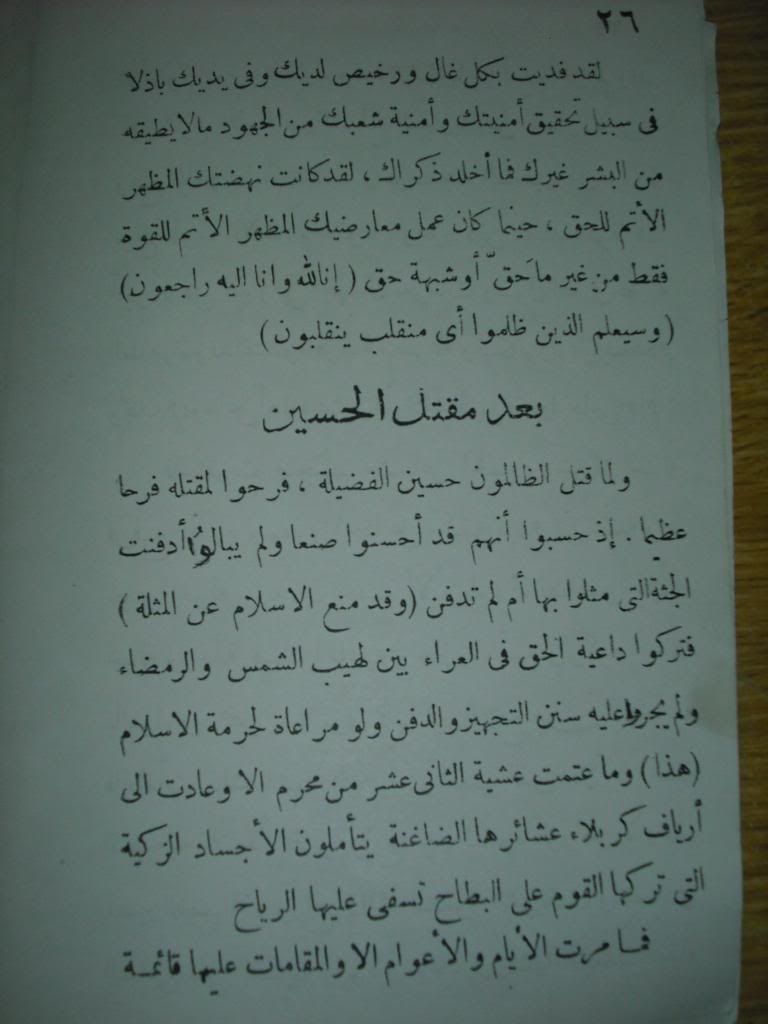 ٢٦
لقد فديت بكل غال ورخيص لديك وفى يديك باذلا
فى سبيل تحقيق أمنيتك وأمنية شعبك من الجهود مالا يطيقه
من البشر غيرك فما أخلد ذكراك ، لقد كانت نهضتك المظهر
الأتم للحق ، حينما كان عمل معارضيك المظهر الأتم للقوة
فقط من غير ماحق ّ أوشبهة حق ( إنالله وانا اليه راجعون )
( وسيعلم الذين ظلموا أى منقلب ينقلبون )
بعد مقتل الحسين
ولما قتل الظالمون حسين الفضيلة ، فرحوا لمقتله فرحا
عظيما . إذ حسبوا أنهم قد أحسنوا صنعا ولم يبالوا أدفنت
الجثة التى مثلوا بها أم لم تدفن ( وقد منع الاسلام عن المثلة )
فتركوا داعية الحق فى العراء بين لهيب الشمس والرمضاء
ولم يجروا عليه سنن التجهيز والدفن ولو مراعاة لحرمة الاسلام
( هذا ) وما عتمت عشية الثانى عشر من محرم الا وعادت الى
أرياف كربلاء عشائرها الضاغنة يتأملون الأجساد الزكية
التى تركها القوم على البطاح تسفى عليها الرياح
فما مرت الأيام والأعوام الا والمقامات عليها قائمة